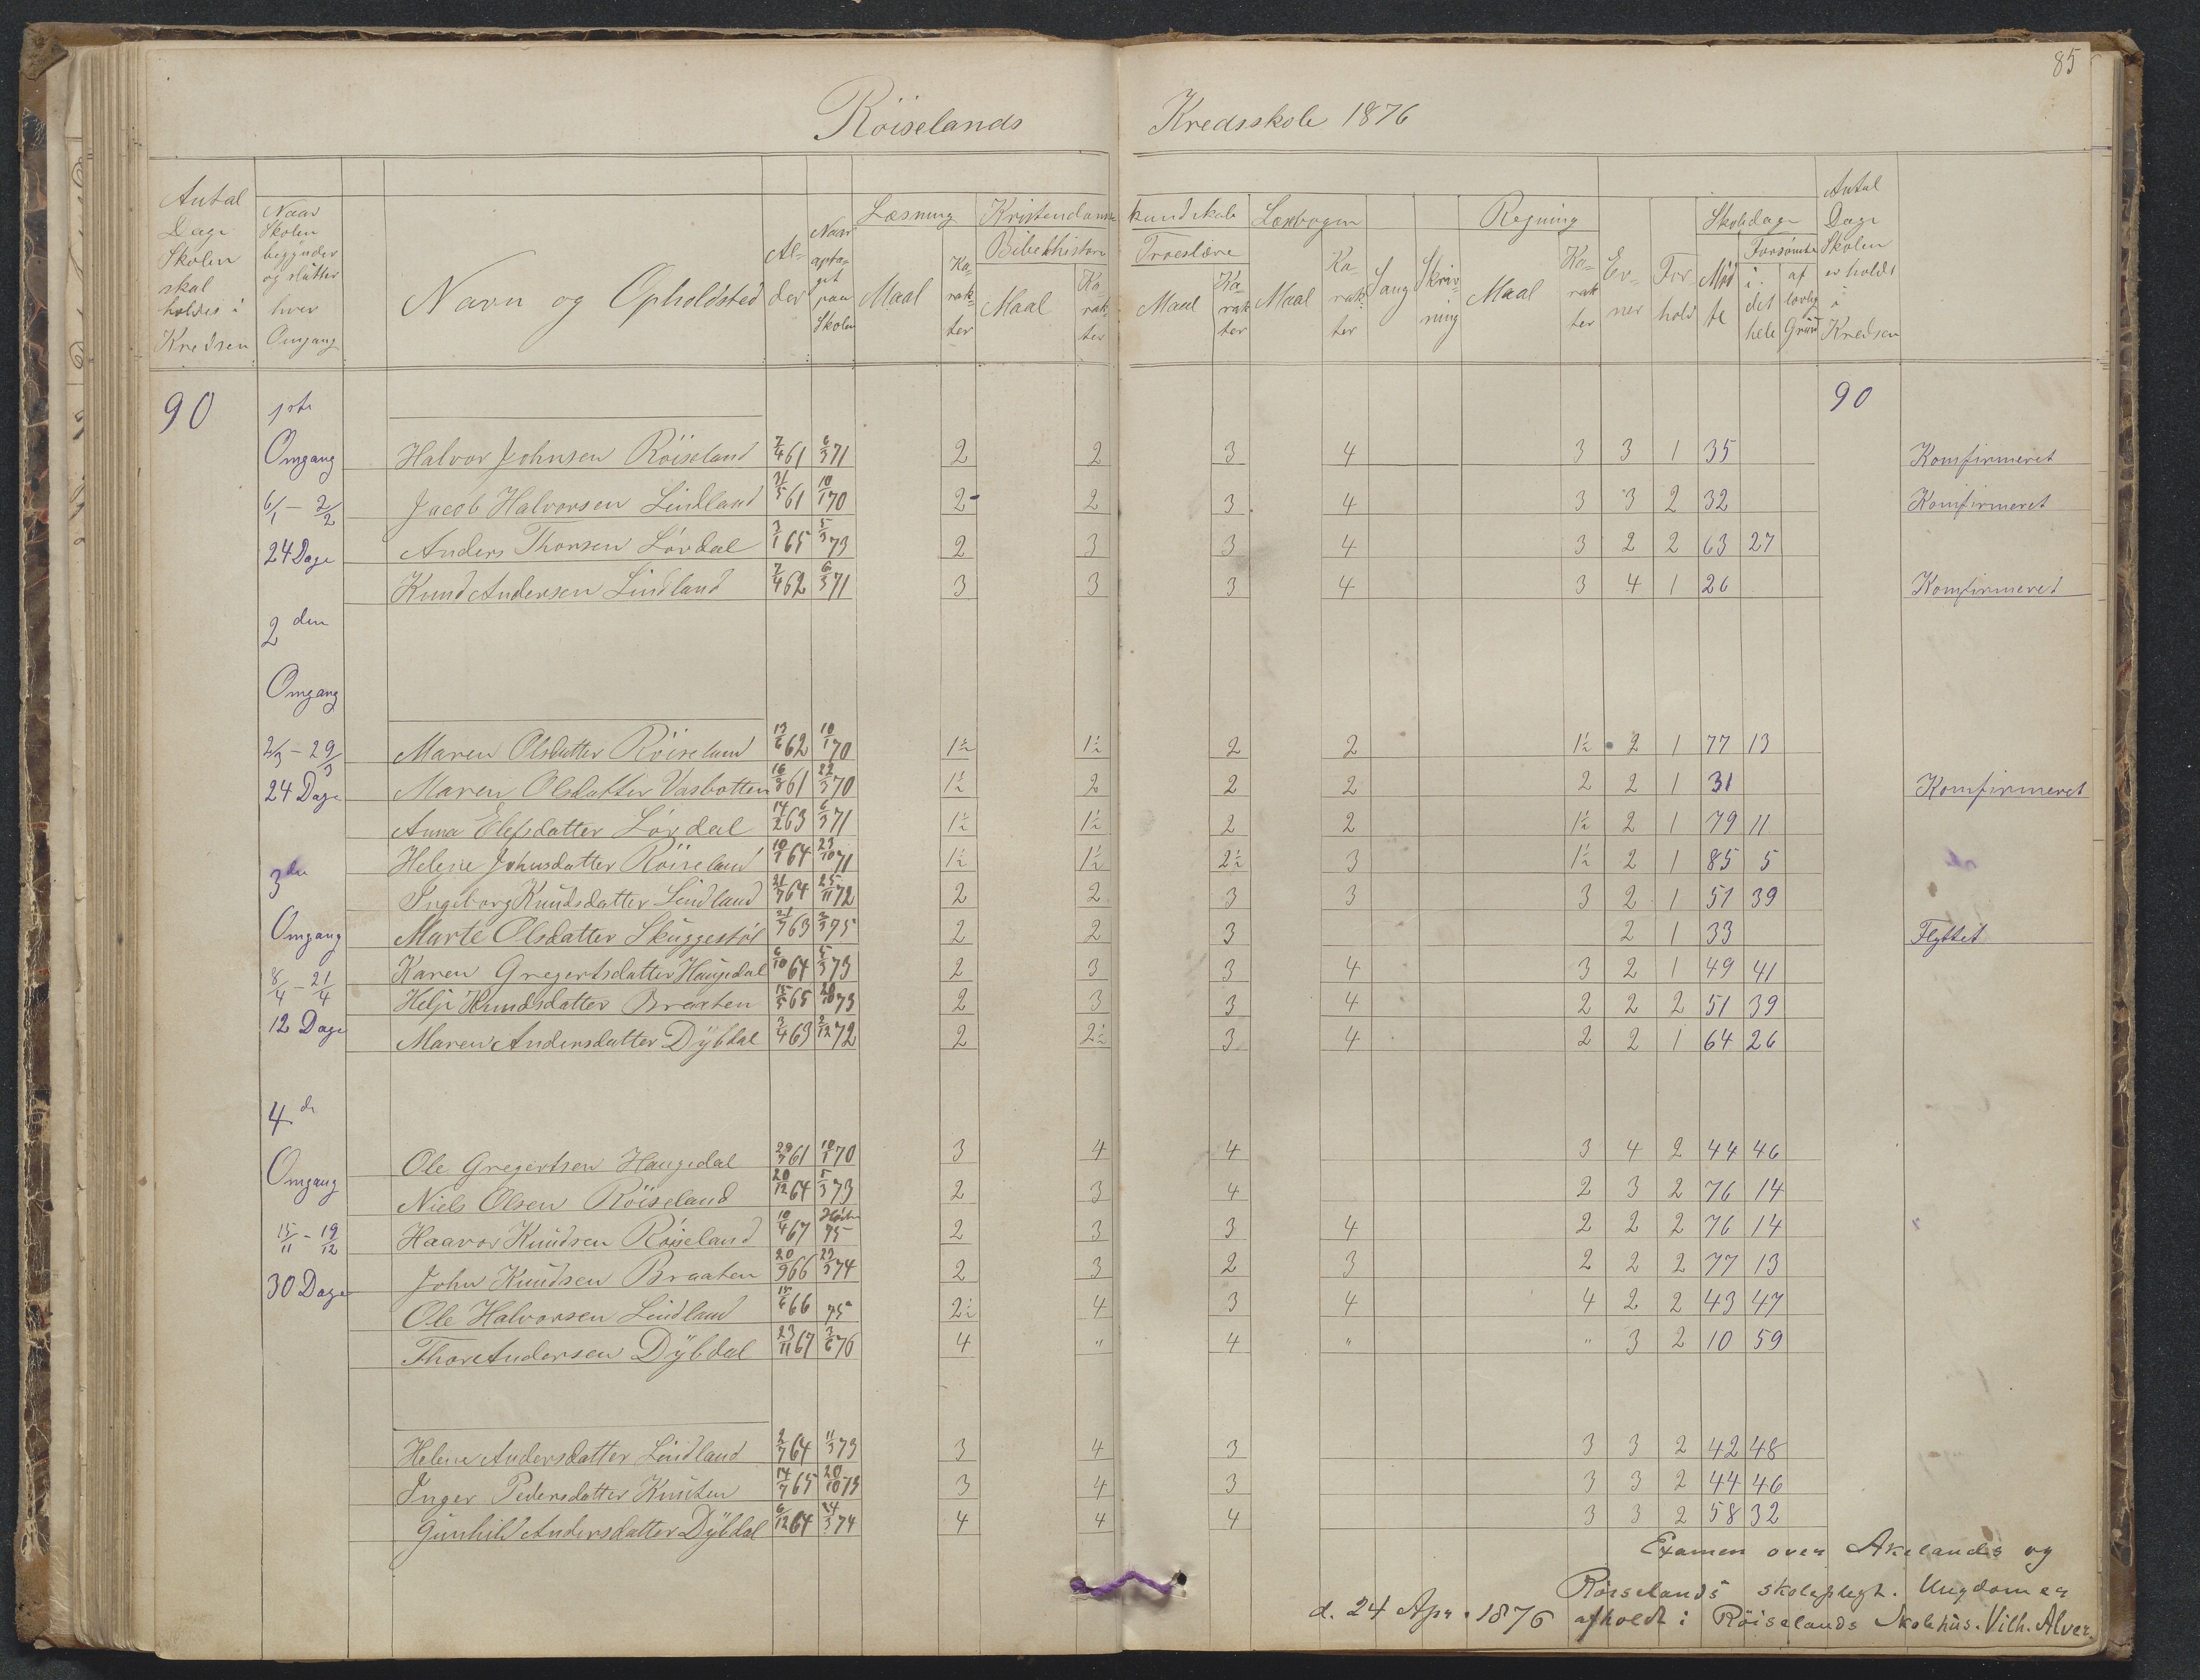 85
Röiselands Kredsskole 1876
Antal Dage Skolen skal holdes i Kredsen
Naar Skolen begynder og slutter hver Omgang
Navn og Opholdsted
Alder
Naar optaget paa Skolen
Læsning Maal Karakter
Kristendomskundskab
Bibelhistorie Maal Karakter
Troeslære Maal Karakter
Læsebogen Maal Karakter
Sang
Skrivning
Regning Maal Karakter
Evner
Forhold
Skoledage Mødte
Forsømte i det hele af lovlig Grund
Antal Dage Skolen er holdt i Kredsen
90 1ste 90
Omgang Halvor Johnsen Röiseland 7/4 61 6/3 71 2 2 3 4 3 3 1 35 Komfirmeret
6/1 - 2/2 Jacob Halvorsen Lindland 21/5 61 10/1 70 2 2 3 4 3 3 2 32 Komfirmeret
24 Dage Anders Thorsen Lördal 3/1 65 5/3 73 2 3 3 4 3 2 2 63 27
Knud Andersen Lindland 7/4 62 6/3 71 3 3 3 4 3 4 1 26 Komfirmeret
2den
Omgang
2/3 - 29/3 Maren Olsdatter Röiseland 13/6 62 10/1 70 1½ 1½ 2 2 1½ 2 1 77 13
24 Dage Maren Olsdatter Vasbotten 16/8 61 22/3 70 1½ 2 2 2 2 2 1 31 Komfirmeret
Anna Elefsdatter Lördal 14/2 63 6/3 71 1½ 1½ 2 2 1½ 2 1 79 11
3die Helene Johnsdatter Röiseland 10/1 64 23/10 71 1½ 1½ 2½ 3 1½ 2 1 85 5
Ingeborg Knudsdatter Lindland 21/7 64 25/11 72 2 2 3 3 3 2 1 51 39
Omgang Marte Olsdatter Skuggestöl 63 75 2 2 3 2 1 33 Flyttet
8/4 - 21/4 Karen Gregertsdatter Haugedal 6/10 64 5/3 73 2 3 3 4 3 2 1 49 41
Helje Knudsdatter Braaten 15/5 65 20/10 73 2 3 3 4 2 2 2 51 39
12 Dage Maren Andersdatter Dÿbdal 3/4 63 2/12 72 2 2½ 3 4 2 2 1 64 26
4de
Omgang Ole Gregertsen Haugedal 29/7 61 10/1 70 3 4 4 3 4 2 44 46
Niels Olsen Röiseland 20/12 64 5/3 73 2 3 4 2 3 2 76 14
15/11 - 19/12 Haavor Knudsen Röiseland 10/4 67 75 2 3 3 4 2 2 2 76 14
30 Dage John Knudsen Braaten 20/9 66 23/3 74 2 3 2 3 2 2 2 77 13
Ole Halvorsen Lindland 15/6 66 75 2½ 4 3 4 4 2 2 43 47
Thore Andersen Dÿbdal 23/11 67 3/6 76 4 " 4 " " 3 2 10 59
Helene Andersdatter Lindland 2/7 64 11/3 73 3 4 3 3 3 2 42 48
Inger Pedersdatter Knuten 14/7 65 20/10 73 3 4 3 3 3 2 44 46
Gunhild Andersdatter Dÿbdal 6/12 64 24/3 74 4 4 4 3 3 2 58 32
Examen over Akelands og
Röiselands skolepligt. Ungdom er
d. 24 Apr. 1876 afholdt i Röiselands Skolehus. Vilh. Alver.